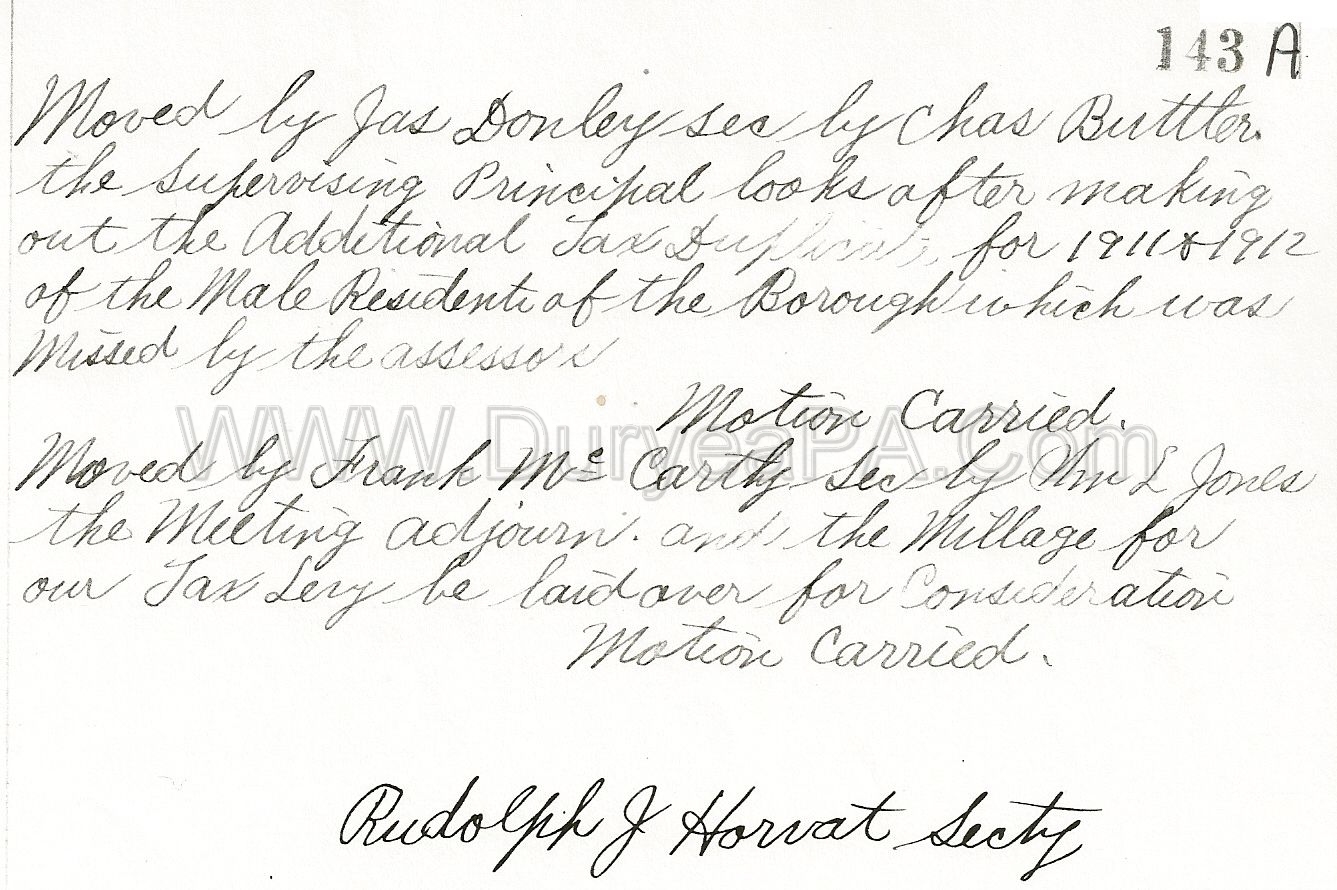 143 A
Moved by Jas Donley sec by Chas Buttler.
the Supervising Principal looks after making
out the Additional Tax Duplicate for 1911 & 1912
of the Male Residents of the Borough which was
Missed by the assessors
Motion Carried.
WWW.DuryeaPA.Com
Moved by Frank Mc Carthy Sec by Wm L Jones
the Meeting adjourn. and the Millage for
our Tax Levy be laid over for Consideration
Motion Carried.
Rudolph J Horvat Secty